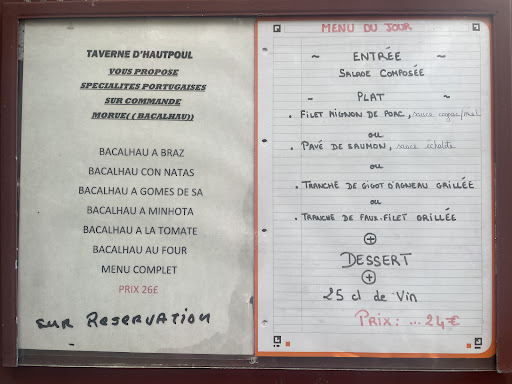 TAVERNE D'HAUTPOUL
VOUS PROPOSE
SPECIALITES PORTUGAISES
SUR COMMANDE
MORUE( ( BACALHAU))
BACALHAU A BRAZ
BACALHAU CON NATAS
BACALHAU A GOMES DE SA
BACALHAU A MINHOTA
BACALHAU A LA TOMATE
BACALHAU AU FOUR
MENU COMPLET
PRIX 26€
SUR RESERVATION
MENU DU JOUR
~ ENTRÉE ~
SALADE COMPOSÉE
- PLAT ~
• FILET MIGNON DE PORC, sauce cognac/miel
ou
• PAVÉ DE SAUMON, sauce échalote
ou
• TRANCHE DE GIGOT D'AGNEAU GRILLÉE
ou
• TRANCHE DE FAUX-FILET GRILLÉE
+
DESSERT
+
25 cl de Vin
PRIX: ... 24€